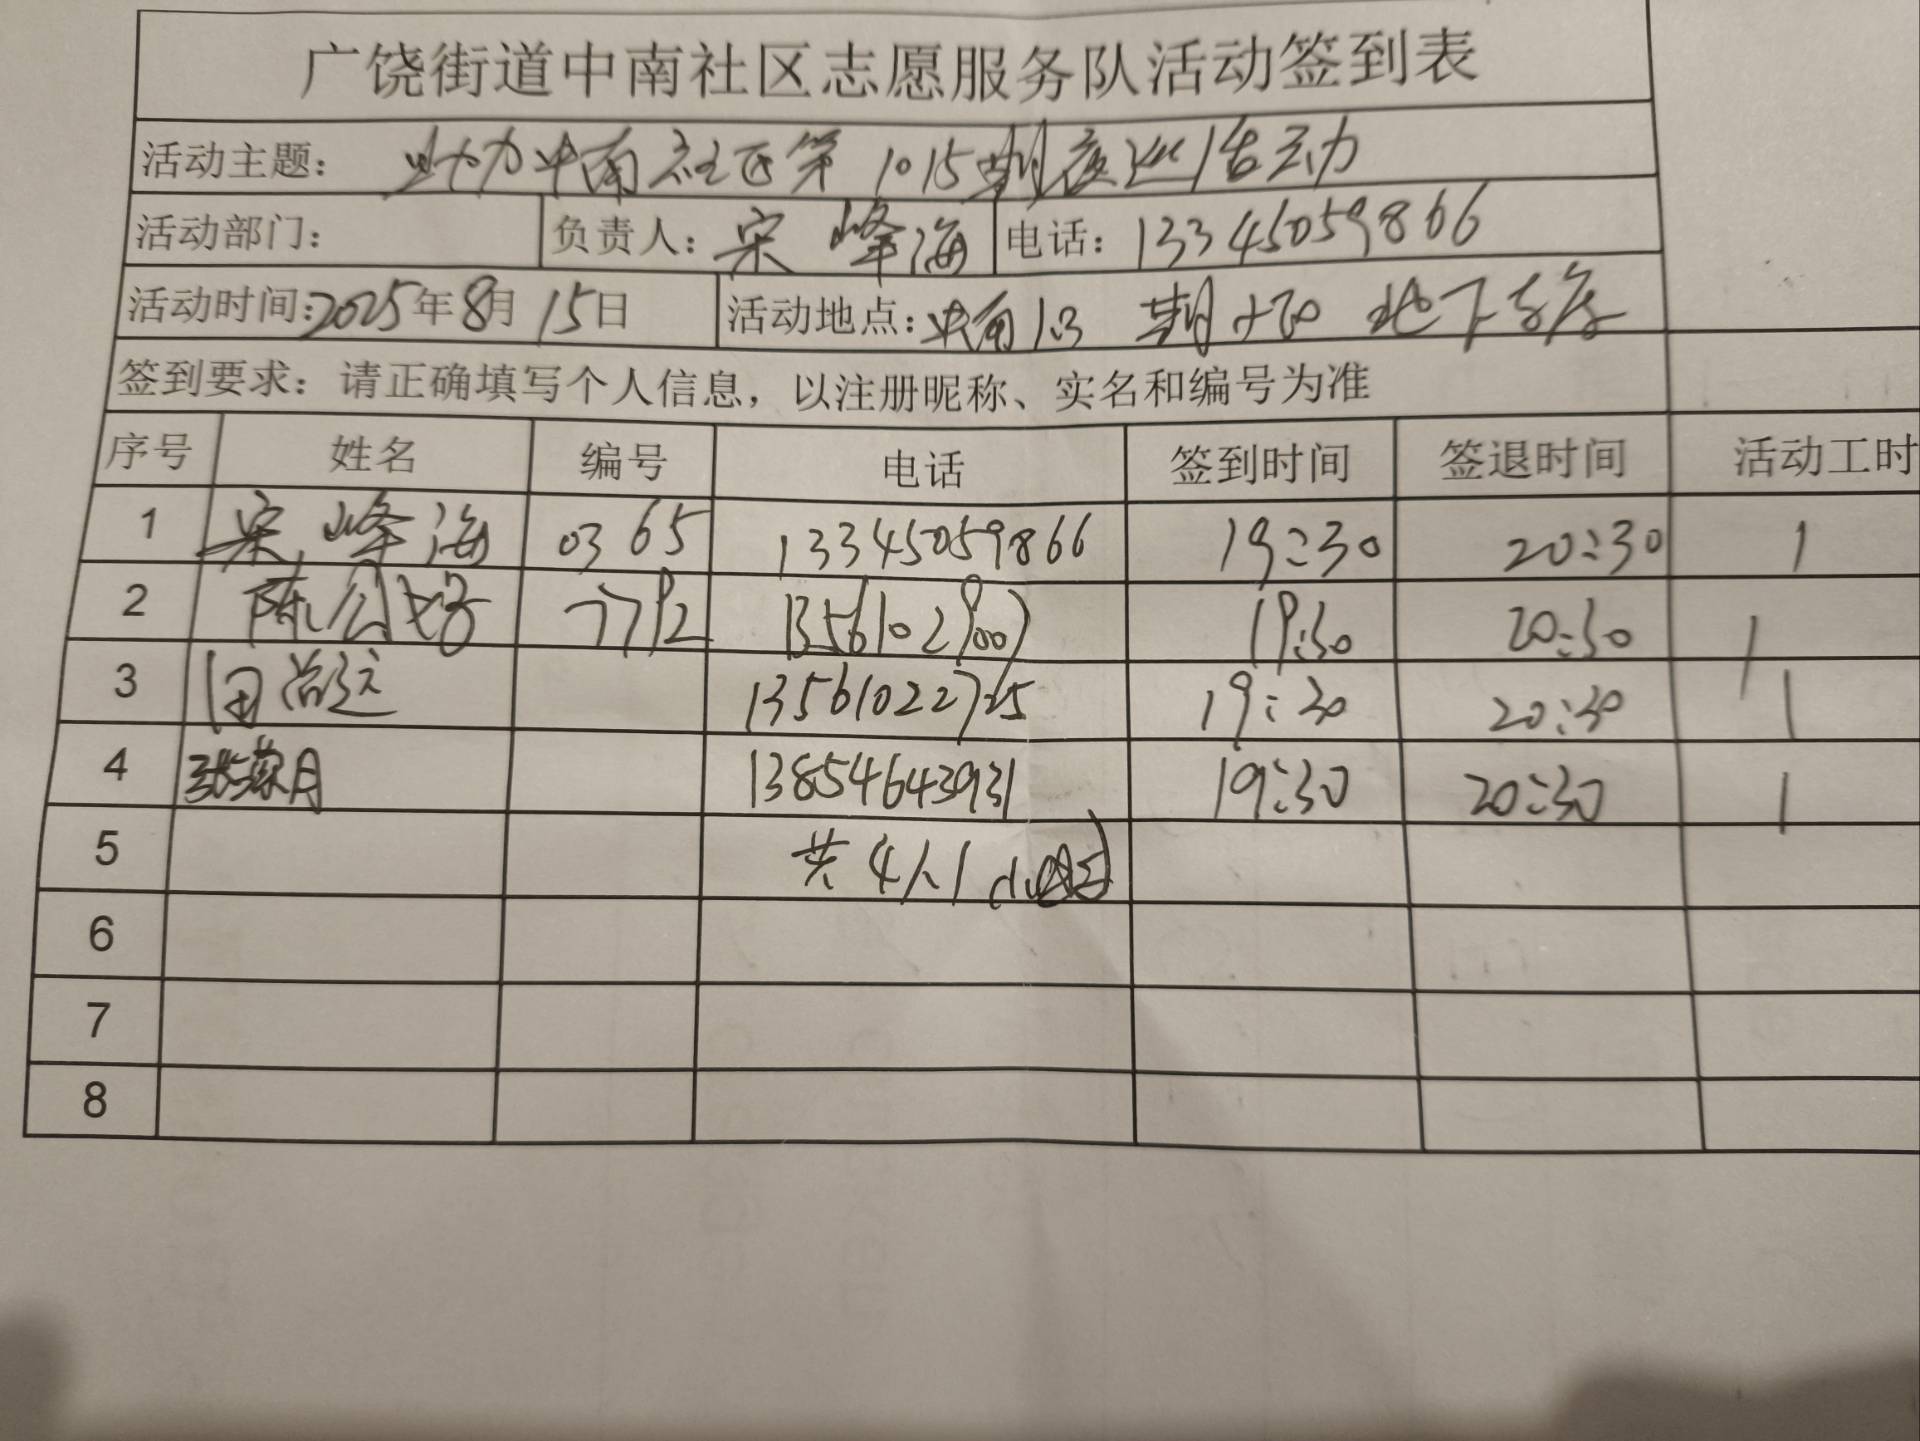 广饶街道中南社区志愿服务队活动签到表
活动主题: 助力中南社区第1015期夜巡活动
活动部门: 负责人: 宋峰海 电话: 13345059866
活动时间: 2025年8月15日 活动地点: 中南1.3期 地下车库
签到要求: 请正确填写个人信息，以注册昵称、实名和编号为准
序号 姓名 编号 电话 签到时间 签退时间 活动工时
1 宋峰海 0365 13345059866 19:30 20:30 1
2 陈公好 7792 13561029007 19:30 20:30 1
3 田尚运 13561022725 19:30 20:30 1
4 张蒙月 13854643931 19:30 20:30 1
5 共4人1小时
6
7
8